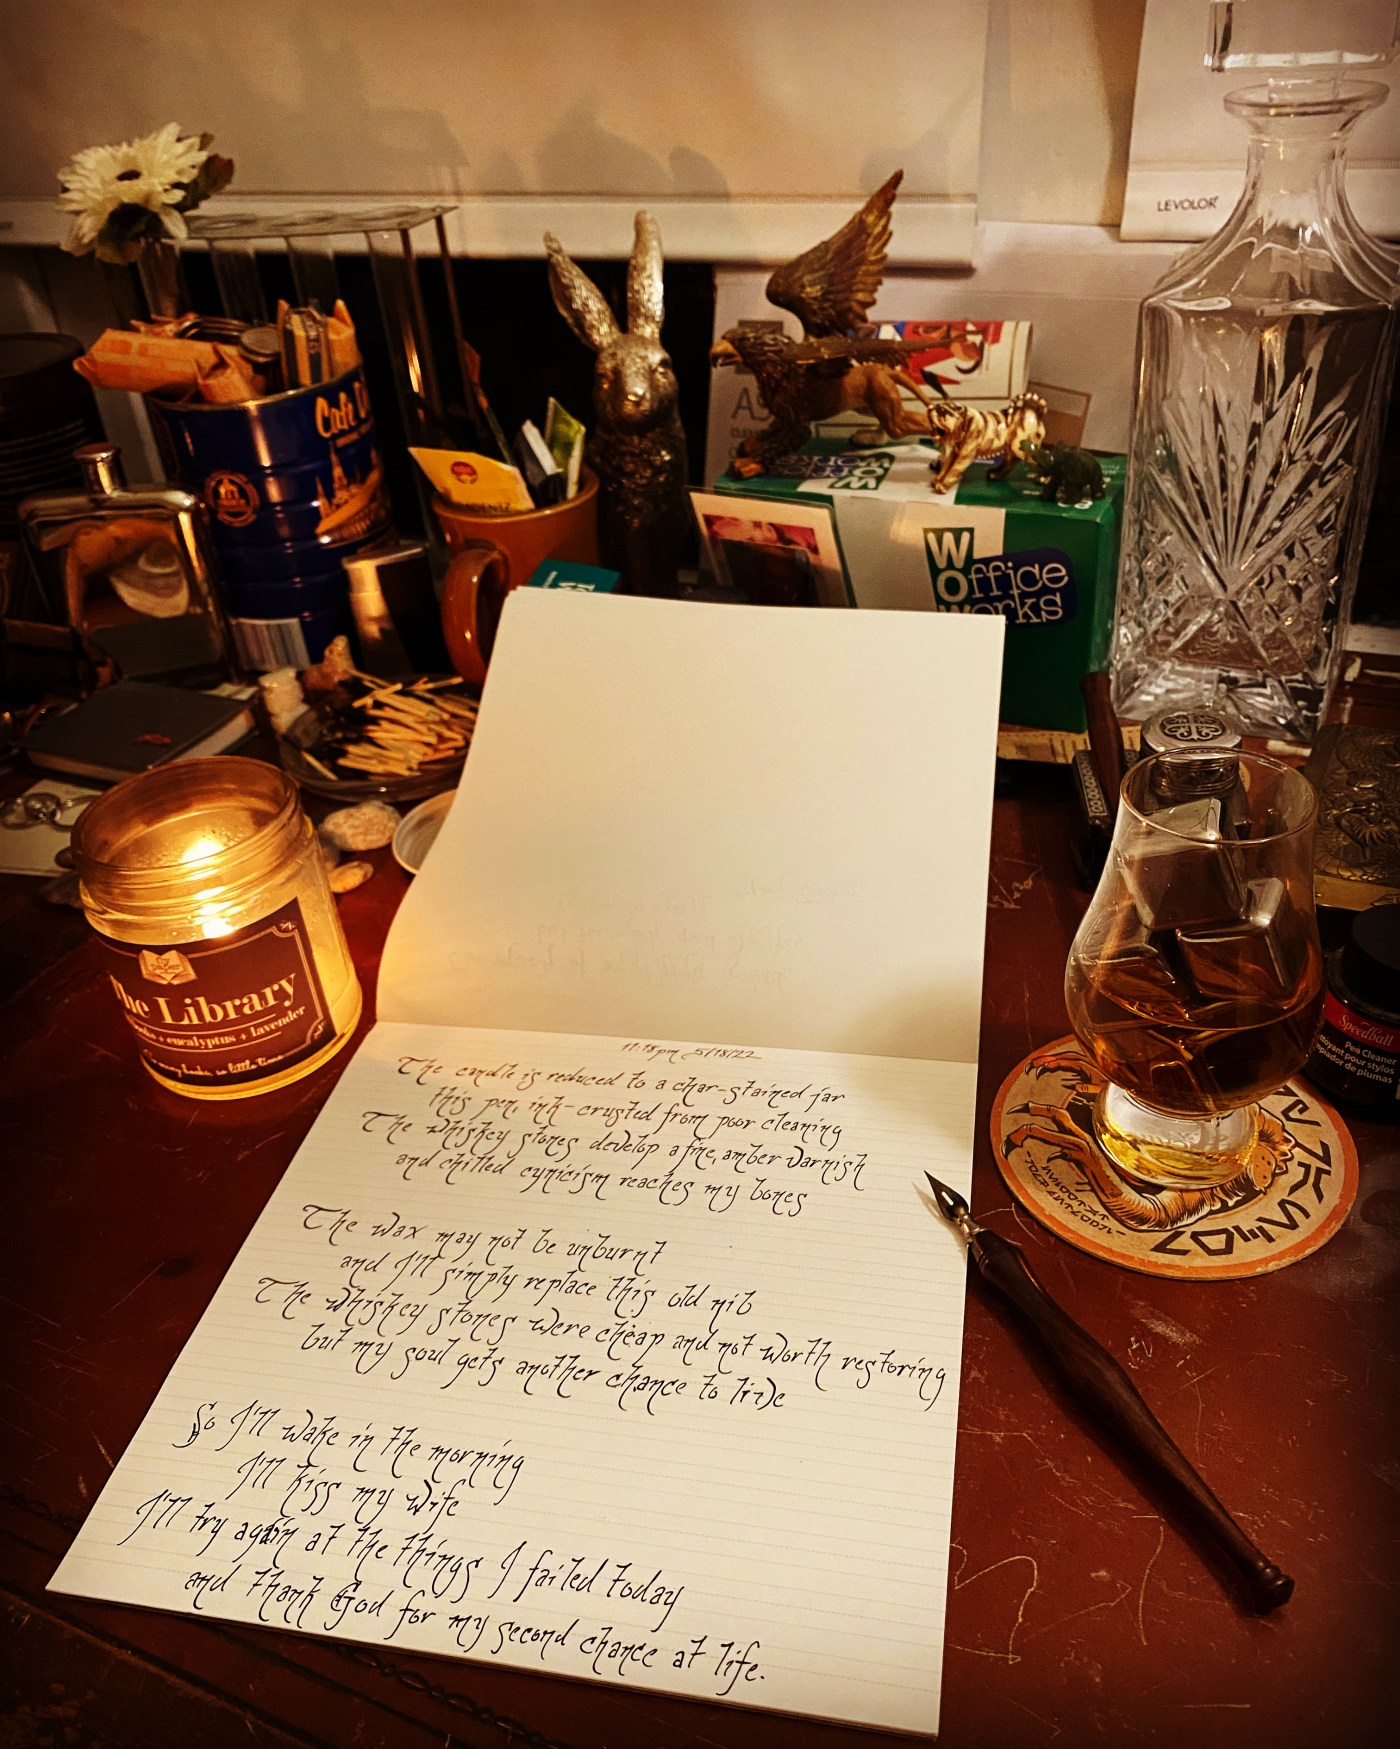 LEVOLOR
Café
WOW
Office
Works
The Library
eucalyptus + lavender
Speedball
Pen Cleaner
11:18pm 5/18/22
The candle is reduced to a char-stained jar
this pen, ink-crusted from poor cleaning
The whiskey stones develop a fine, amber varnish
and chilled cynicism reaches my bones
The wax may not be unburnt
and I'll simply replace this old nib
The whiskey stones were cheap and not worth restoring
but my soul gets another chance to live
So I'll wake in the morning
I'll kiss my wife
I'll try again at the things I failed today
and thank God for my second chance at life.